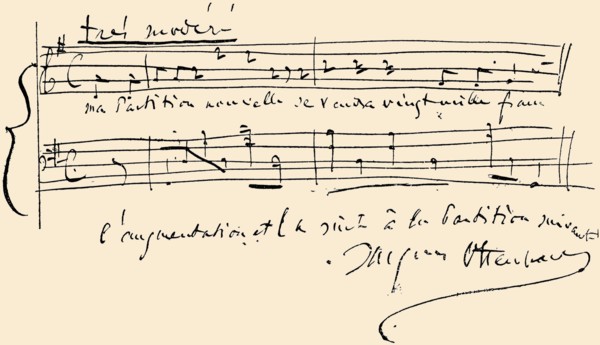 très modéré
ma partition nouvelle se vendra vingt mille francs
l'augmentation et la suite à la partition suivante
Jacques Offenbach